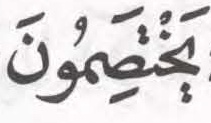 يَخْتَصِمُونَ